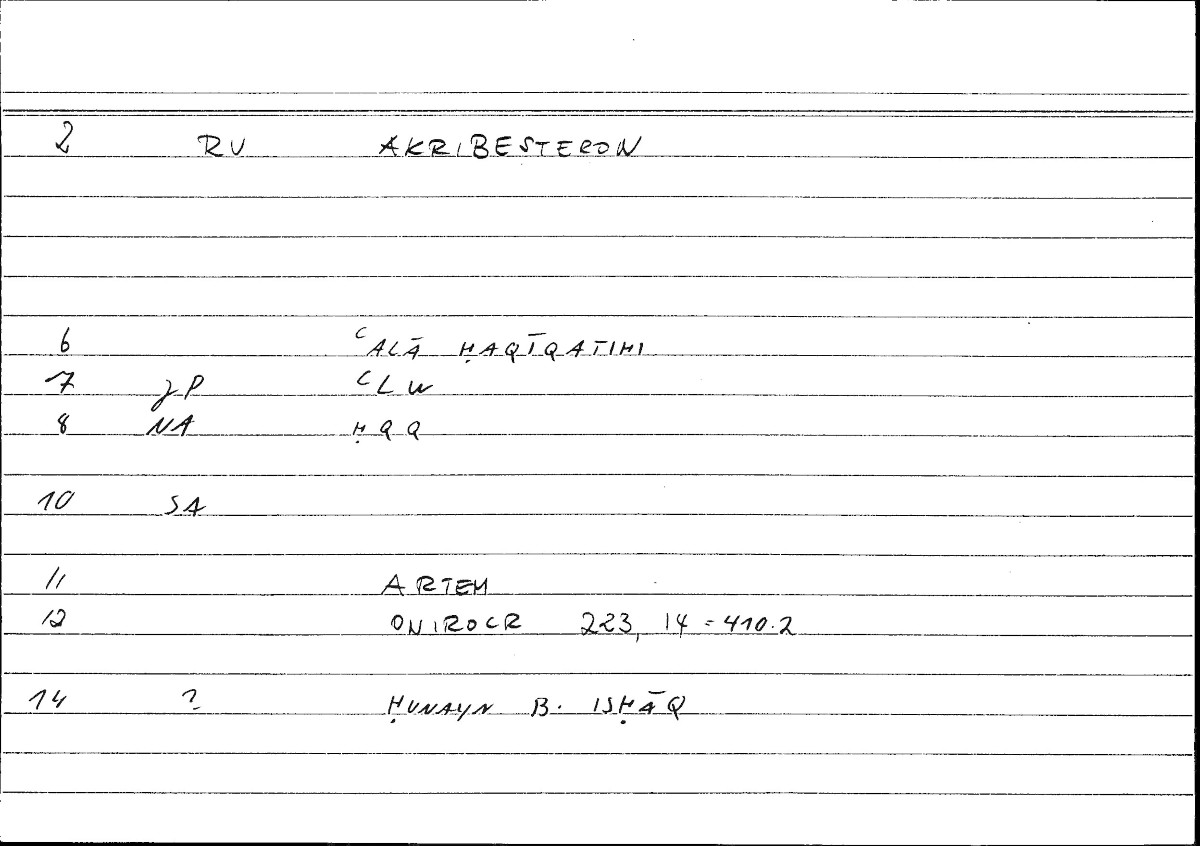 2 RV AKRIBESTERON
6 ʿALĀ ḤAQĪQATIHI
7 JP ʿLW
8 NA ḤQQ
10 SA
11 ARTEM
12 ONIROCR 223, 14 = 410.2
14 ? ḤUNAYN B. ISḤĀQ